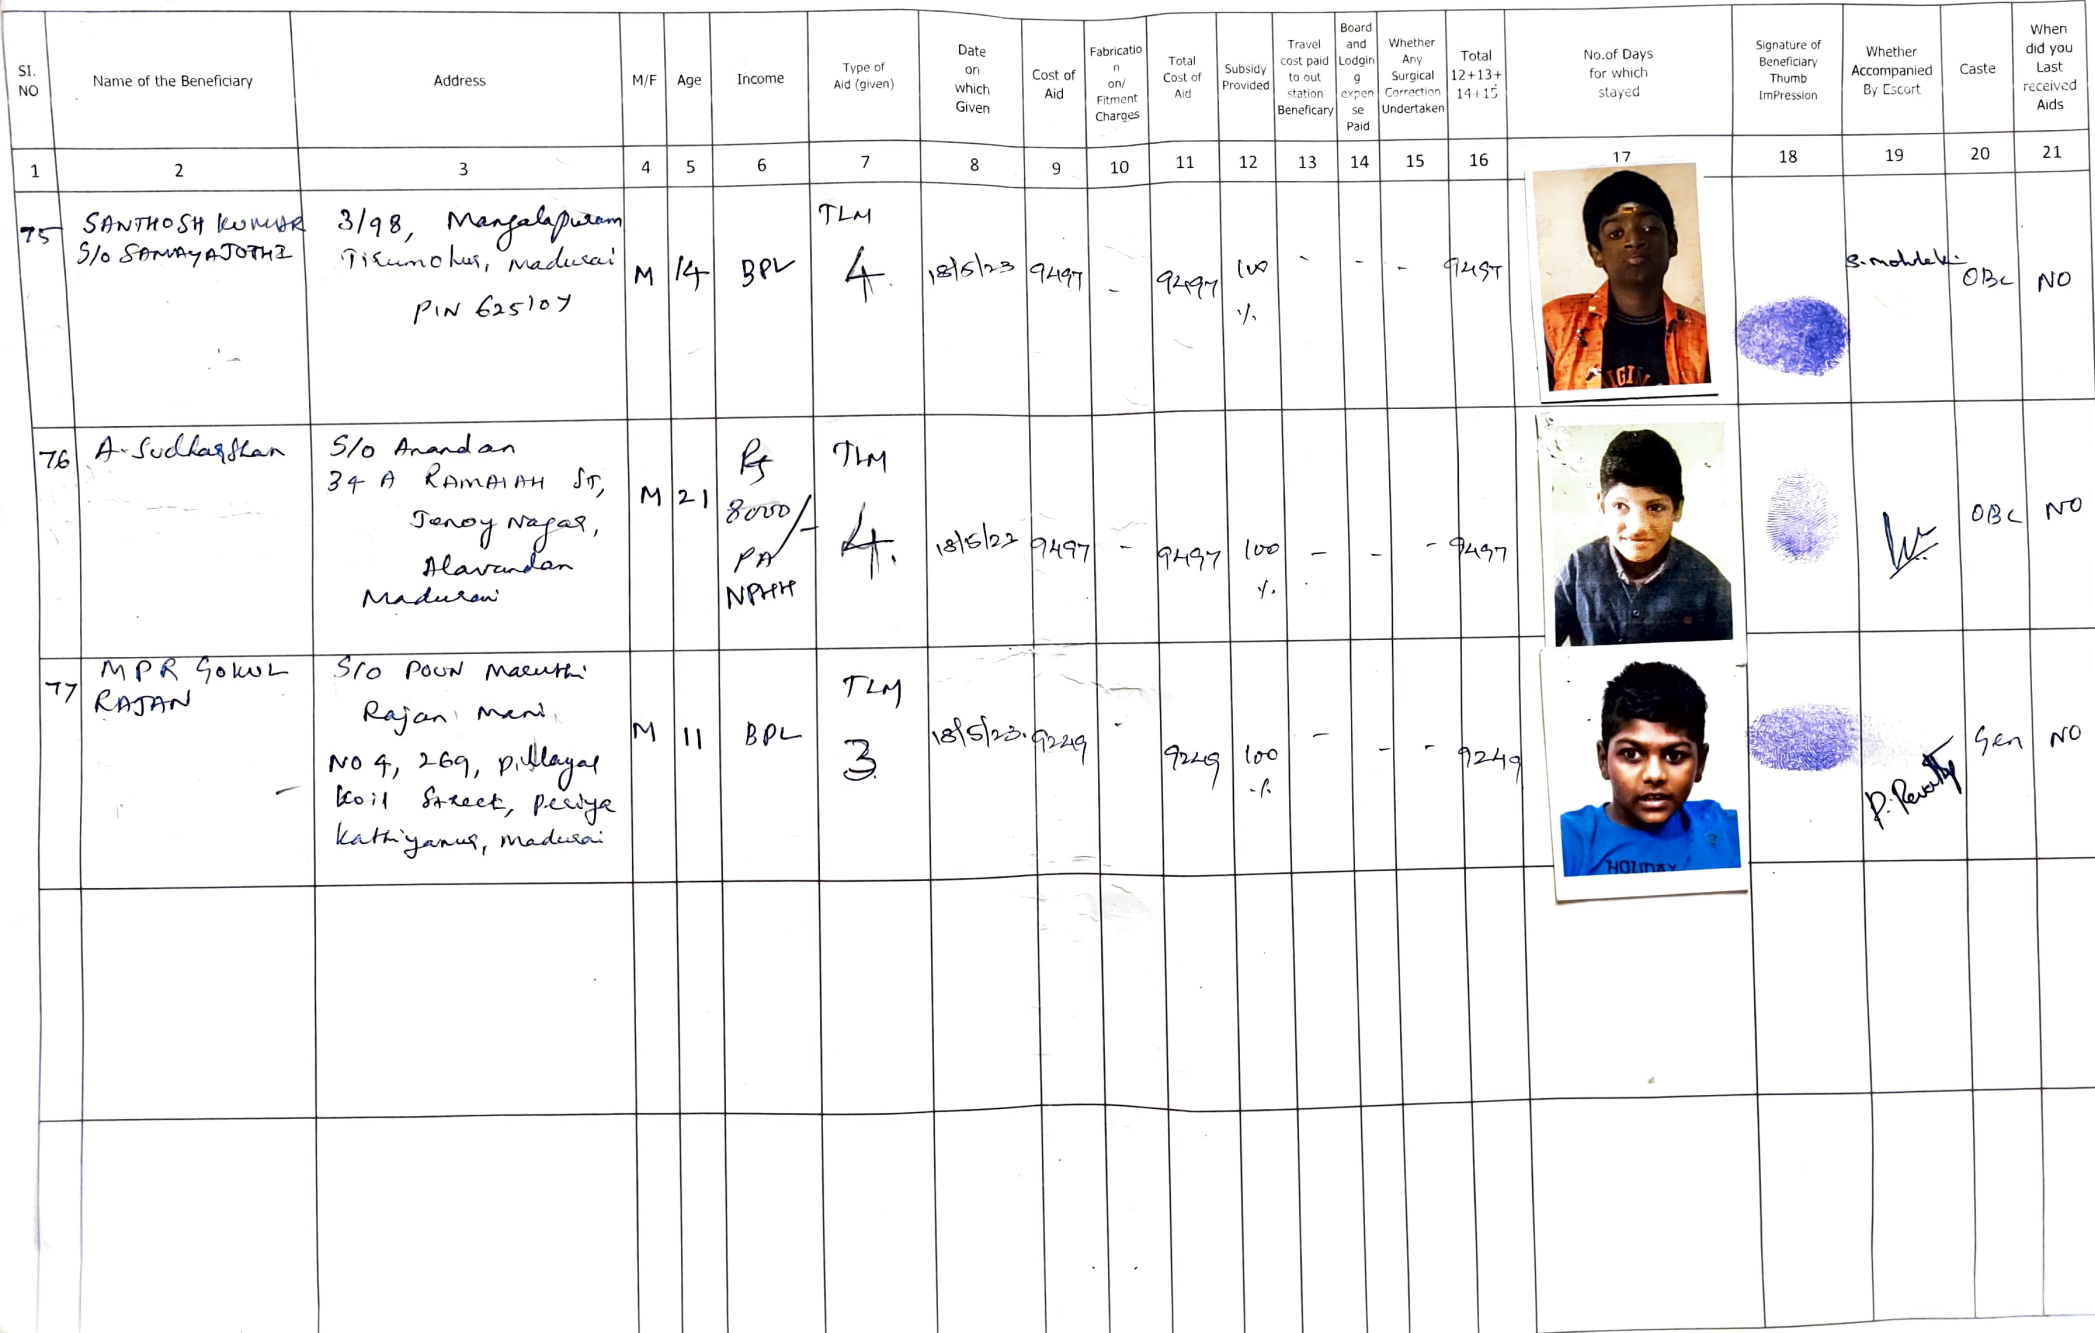 SI. NO
Name of the Beneficiary
Address
M/F
Age
Income
Type of
Aid (given)
Date
on
which
Given
Cost of
Aid
Fabricatio
n
on/
Fitment
Charges
Total
Cost of
Aid
Subsidy
Provided
Travel
cost paid
to out
station
Beneficary
Board
and
Lodgin
g
expen
se
Paid
Whether
Any
Surgical
Correction
Undertaken
Total
12+13+
14+15
No.of Days
for which
stayed
Signature of
Beneficiary
Thumb
ImPression
Whether
Accompanied
By Escort
Caste
When
did you
Last
received
Aids
1 2 3 4 5 6 7 8 9 10 11 12 13 14 15 16 17 18 19 20 21
75
SANTHOSH KUMAR
S/o SAMAYAJOTHI
3/98, Mangalapuram
Tirumohur, Madurai
PIN 625107
M
14
BPL
TLM
4.
18/5/23
9497
-
9497
100
%
-
-
-
9497
IGIN
OBC
NO
76
A. Sudharshan
S/o Anandan
34 A RAMAIAH ST,
Jenoy Nagar,
Alavandan
Madurai
M
21
Rs
8000/-
PA
NPHH
TLM
4.
18/5/23
9497
-
9497
100
%.
-
-
-
9497
OBC
NO
77
MPR GOKUL
RAJAN
S/O POUN Maruthi
Rajan Mani
NO 4, 269, Pillayar
Koil Street, Periya
Kathiyanur, Madurai
M
11
BPL
TLM
3
18/5/23.
9249
-
9249
100
%
-
-
-
9249
HOLIDAY
P. Revathy
Gen
NO